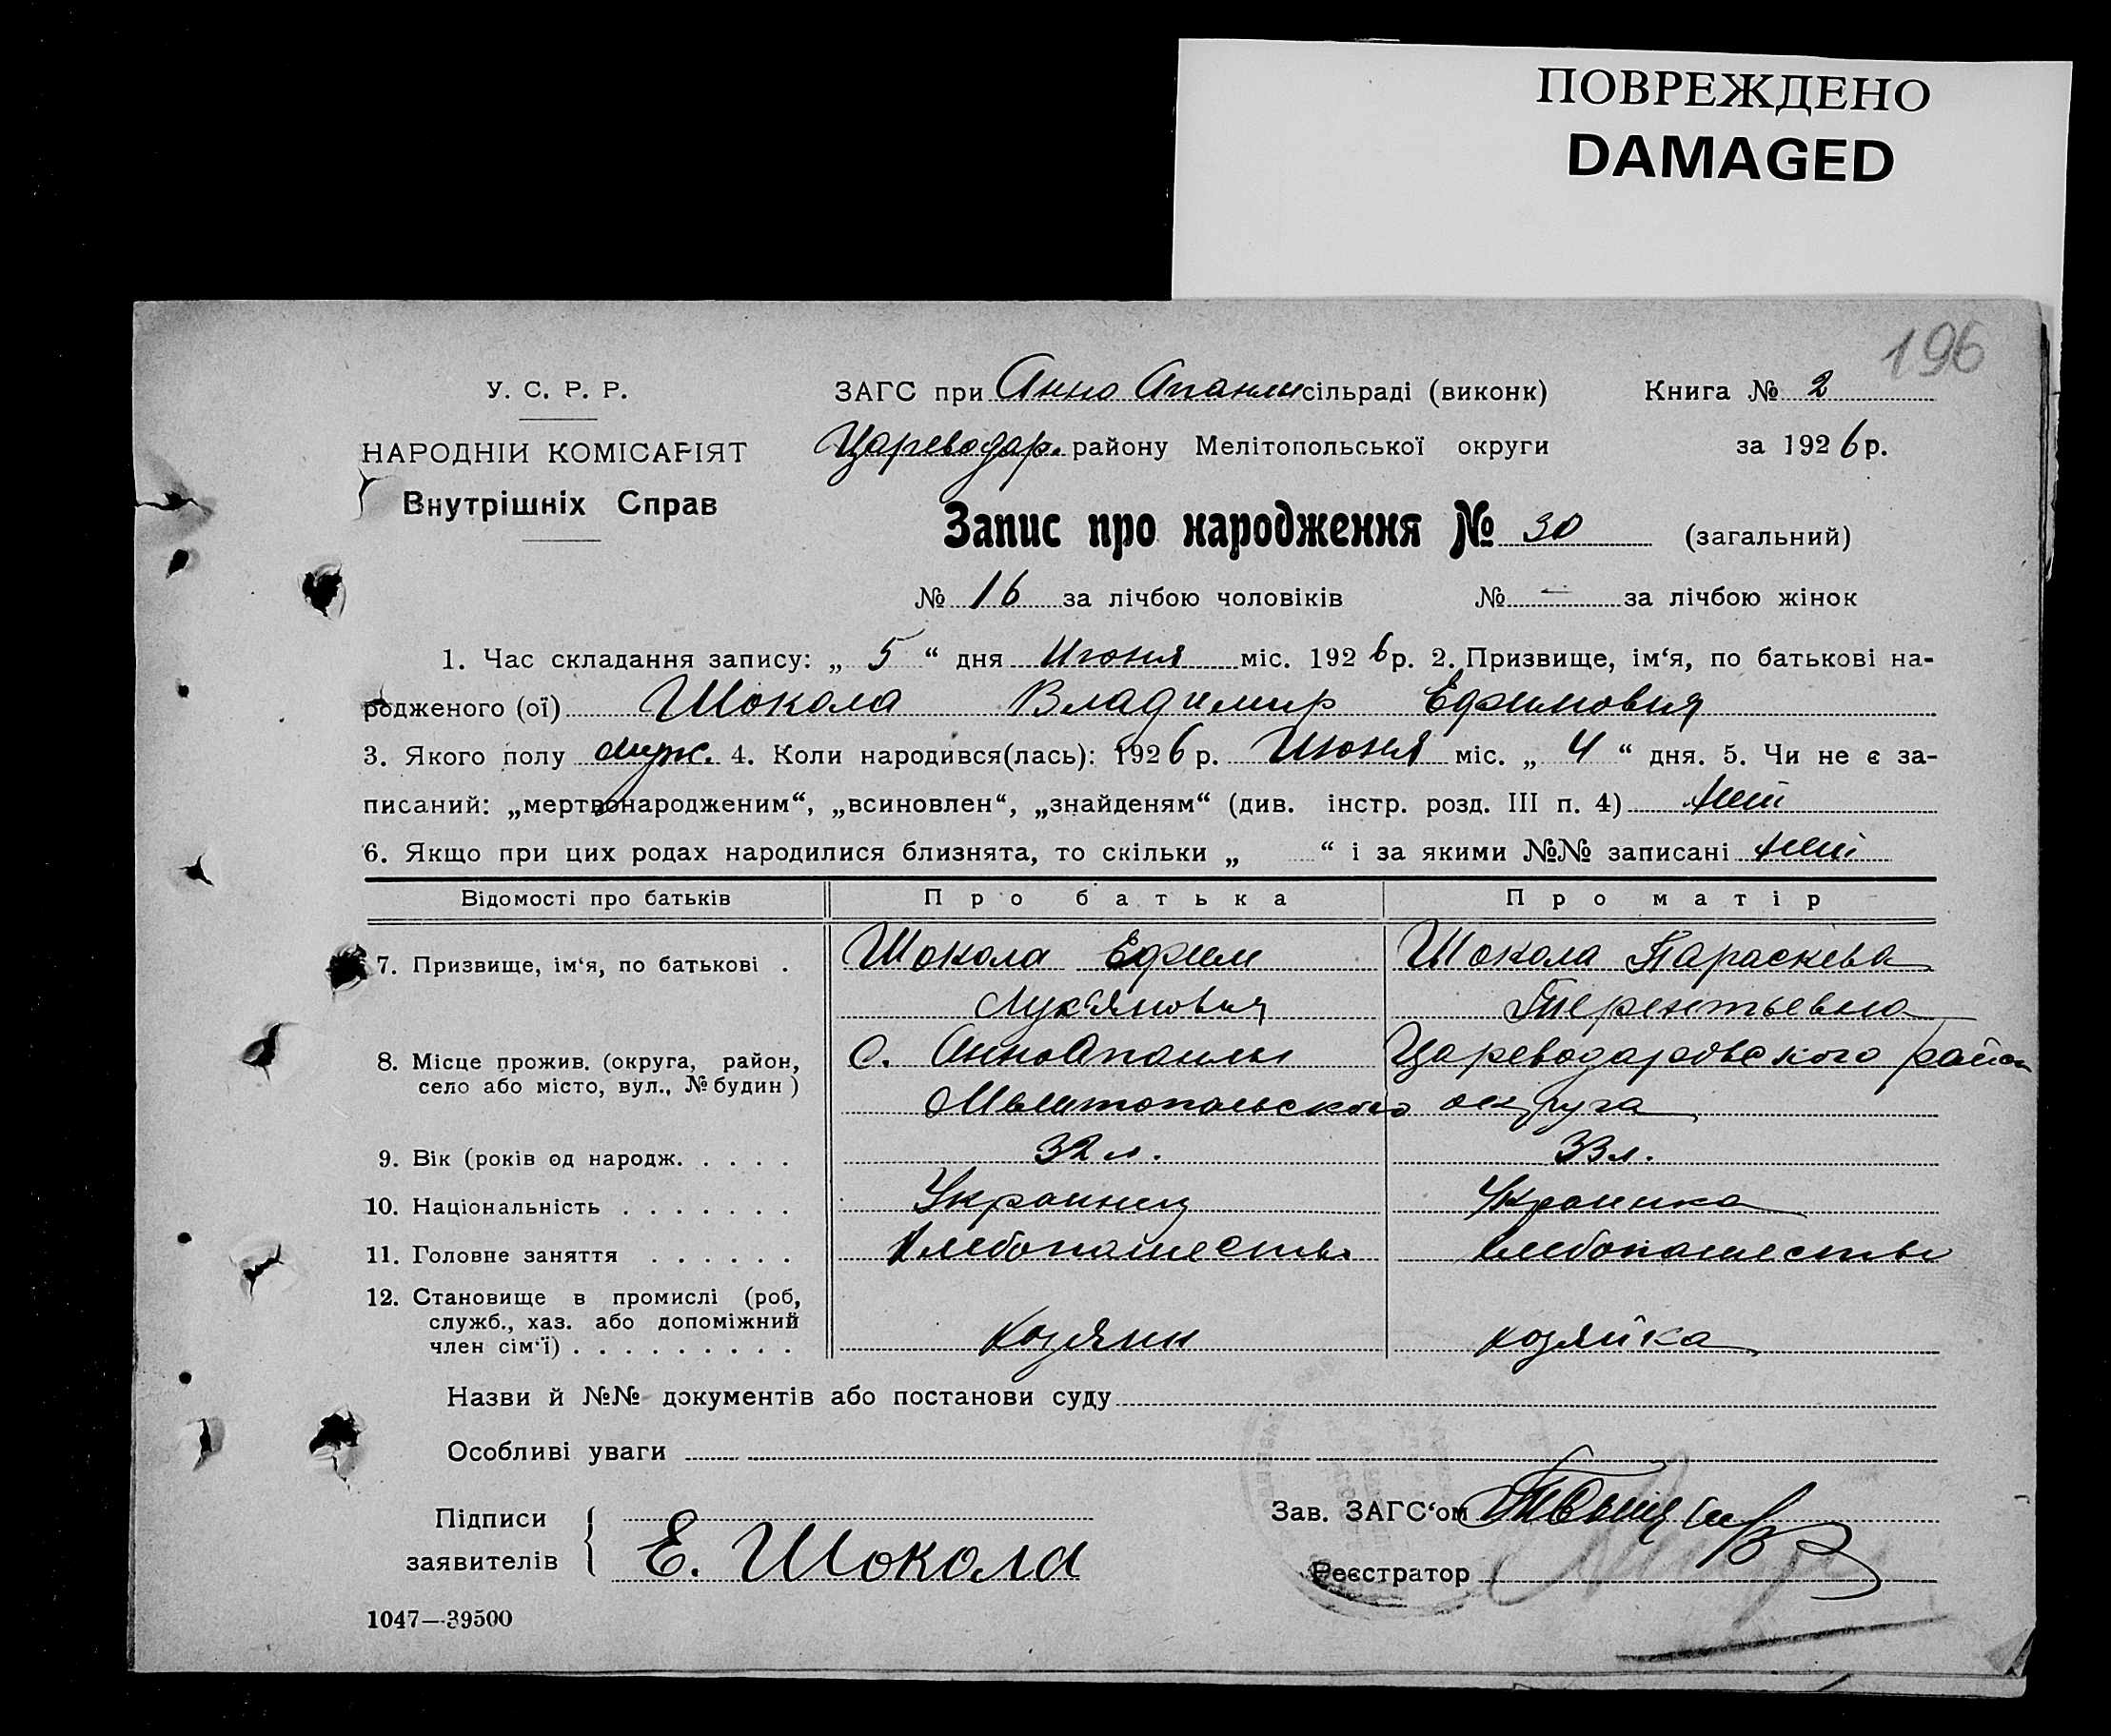 ПОВРЕЖДЕНО
DAMAGED
196
У. С. Р. Р.
ЗАГС при Анно Апанли сільраді (виконк)
Книга № 2
НАРОДНІЙ КОМІСАРІЯТ
Цареводар. району Мелітопольської округи
за 1926 р.
Внутрішніх Справ
Запис про народження № 30 (загальний)
№ 16 за лічбою чоловіків № — за лічбою жінок
1. Час складання запису: „ 5 “ дня Июня міс. 1926 р. 2. Призвище, ім‘я, по батькові на-
родженого (ої) Шокола Владимир Ефимович
3. Якого полу муж. 4. Коли народився(лась): 1926 р. Июня міс. „ 4 “ дня. 5. Чи не є за-
писаний: „мертвонародженим“, „всиновлен“, „знайденям“ (див. інстр. розд. III п. 4) нет
6. Якщо при цих родах народилися близнята, то скільки „ “ і за якими №№ записані нет
Відомості про батьків Про батька Про матір
7. Призвище, ім‘я, по батькові . Шокола Ефим Шокола Параскева
Лукʼянович Терентьевна
8. Місце прожив. (округа, район, с. АнноАпанлы Цареводаровского район
село або місто, вул., № будин )
Мелитопольского округа
9. Вік (років од народж. . . . . 32 л. 33 л.
10. Національність . . . . . . . Украинец Украинка
11. Головне заняття . . . . . . Хлебопашество хлебопашество
12. Становище в промислі (роб,
служб., хаз. або допоміжний
член сім‘ї) . . . . . . . . . хозяин хозяйка
Назви й №№ документів або постанови суду
Особливі уваги
Підписи
заявителів
Е. Шокола
Зав. ЗАГС‘ом
Реєстратор
1047—39500